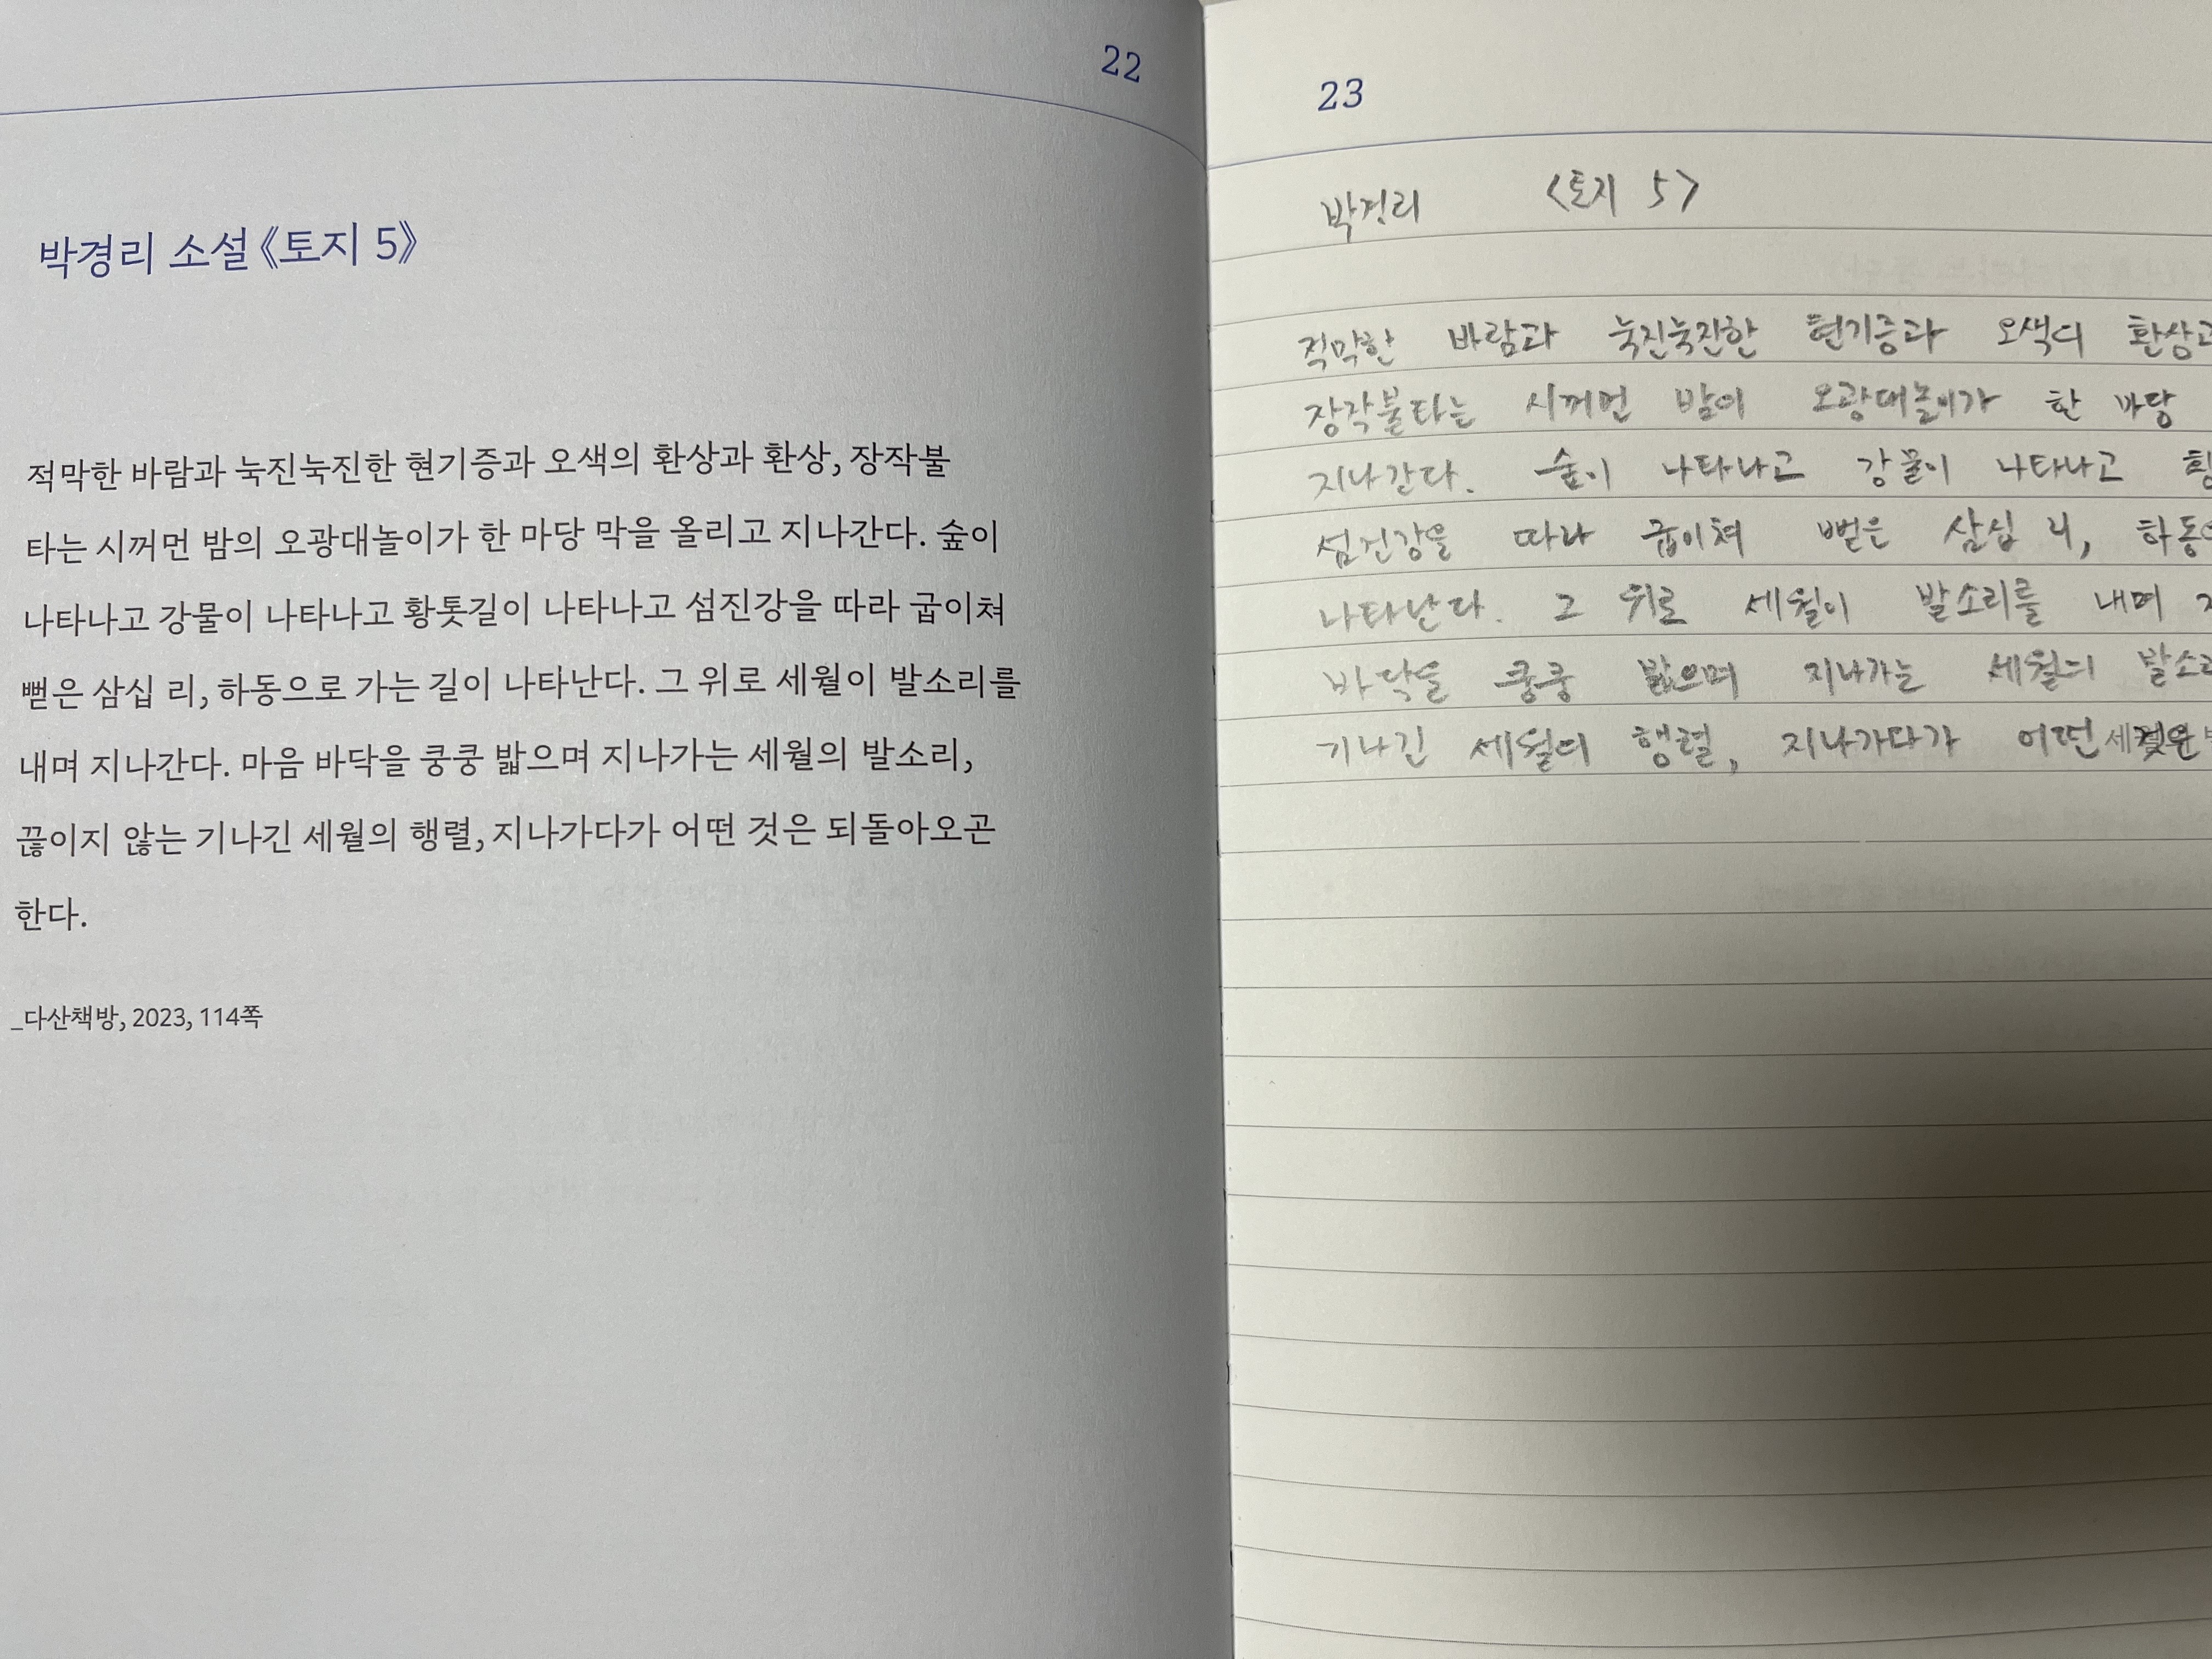 22
박경리 소설 《토지 5》
적막한 바람과 눅진눅진한 현기증과 오색의 환상과 환상, 장작불
타는 시꺼먼 밤의 오광대놀이가 한 마당 막을 올리고 지나간다. 숲이
나타나고 강물이 나타나고 황톳길이 나타나고 섬진강을 따라 굽이쳐
뻗은 삼십 리, 하동으로 가는 길이 나타난다. 그 위로 세월이 발소리를
내며 지나간다. 마음 바닥을 쿵쿵 밟으며 지나가는 세월의 발소리,
끊이지 않는 기나긴 세월의 행렬, 지나가다가 어떤 것은 되돌아오곤
한다.
_다산책방, 2023, 114쪽
23
박경리 <토지 5>
적막한 바람과 눅진눅진한 현기증과 오색의 환상과
장작불타는 시꺼먼 밤의 오광대놀이가 한 마당
지나간다. 숲이 나타나고 강물이 나타나고
섬진강을 따라 굽이쳐 뻗은 삼십 리,
나타난다. 그 위로 세월이 발소리를 내며
바닥을 쿵쿵 밟으며 지나가는 세월의
기나긴 세월의 행렬, 지나가다가 어떤